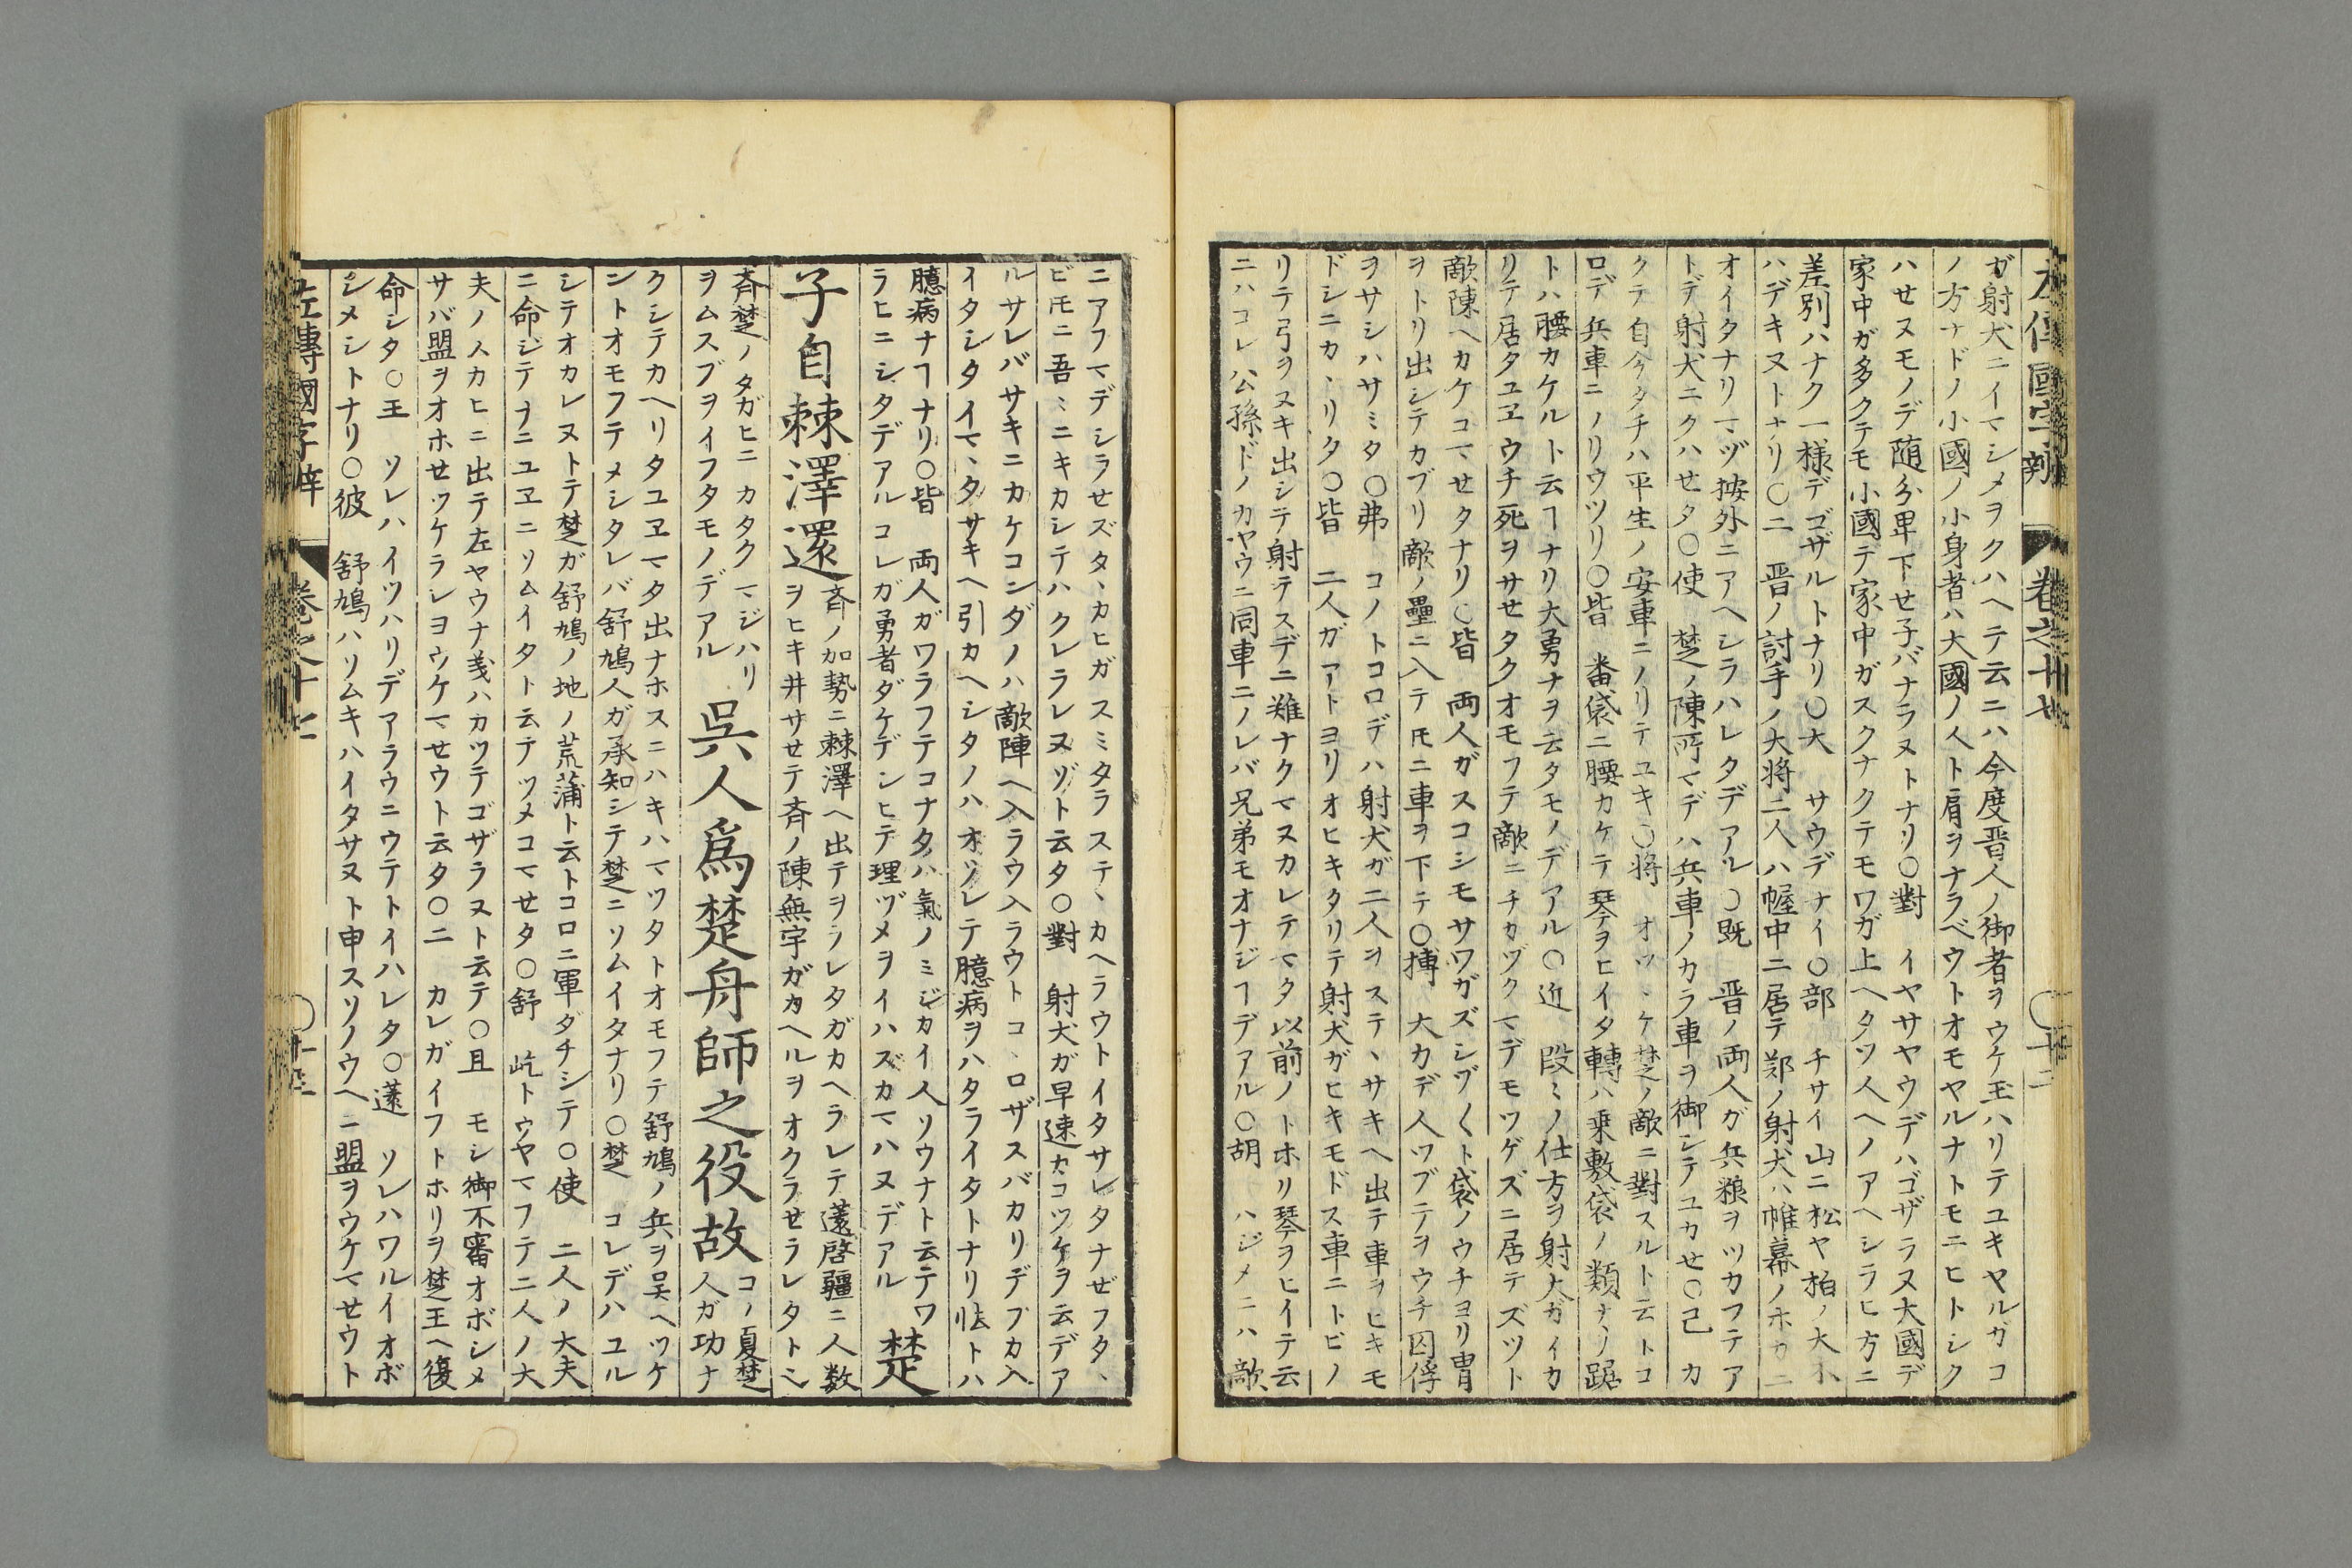 左傳國字辯 卷之十七 〇十二
ガ射犬ニイマシメヲクハヘテ云ニハ今度晋人ノ御者ヲウケ玉ハリテユキヤルガコ
ノ方ナドノ小國ノ小身者ハ大國ノ人ト肩ヲナラベウトオモヤルナトモニヒトシク
ハせヌモノデ随分卑下せ子バナラヌトナリ〇對 イヤサヤウデハゴザラヌ大國デ
家中ガ多クテモ小國テ家中ガスクナクテモワガ上ヘタツ人ヘノアヘシラヒ方ニ
差別ハナク一様デゴザルトナリ〇大 サウデナイ〇部 チサイ山ニ松ヤ柏ノ大木
ハデキヌトナリ〇二 晋ノ討手ノ大将二人ハ幄中ニ居テ郑ノ射犬ハ帷幕ノホカニ
オイタナリマヅ按外ニアヘシラハレタデアル〇既 晋ノ両人ガ兵粮ヲツカフテア
トデ射犬ニクハせタ〇使 楚ノ陳所マデハ兵車ノカラ車ヲ御シテユカせ〇己 カ
クテ自今タチハ平生ノ安車ニノリテユキ〇将 オツヽケ楚ノ敵ニ對スルト云トコ
ロデ兵車ニノリウツリ〇皆 畨袋ニ腰カケテ琴ヲヒイタ轉ハ乗敷袋ノ類ナリ踞
トハ腰カケルト云ヿナリ大勇ナヲ云タモノデアル〇近 段ミノ仕方ヲ射犬ガイカ
リテ居タユヱウチ死ヲサせタクオモフテ敵ニチカヅクマデモツゲズニ居テズツト
敵陳ヘカケコマせタナリ〇皆 両人ガスコシモサワガズシヅ〳〵ト袋ノウチヨリ冑
ヲトリ出シテカブリ敵ノ壘ニ入テ𪜈ニ車ヲ下テ〇搏 大力デ人ツブテヲウチ囚俘
ヲサシハサミタ〇弗 コノトコロデハ射犬ガ二人ヲステヽサキヘ出テ車ヲヒキモ
ドシニカヽリタ〇皆 二人ガアトヨリオヒキタリテ射犬ガヒキモドス車ニトビノ
リテ弓ヲヌキ出シテ射テスデニ難ナクマヌカレテマタ以前ノトホリ琴ヲヒイテ云
ニハコレ公孫ドノカヤウニ同車ニノレバ兄弟モオナジヿデアル〇胡 ハジメニハ敵
ニアフマデシラせズタヽカヒガスミタラステヽカヘラウトイタサレタナぜフタヽ
ビ𪜈ニ吾ミニキカシテハクレラレヌゾト云タ〇對 射犬ガ早速カコツケヲ云デア
ルサレバサキニカケコンダノハ敵陣ヘ入ラウ入ラウトコヽロザスバカリデブカ入
イタシタイマヽタサキヘ引カヘシタノハオソレテ臆病ヲハタライタトナリ怯トハ
臆病ナヿナリ〇皆 両人ガワラフテコナタハ氣ノミジカイ人ソウナト云テワ
ラヒニシタデアルコレガ勇者ダケデンヒテ理ヅメヲイハズカマハヌデアル 楚
子自棘澤還 斉ノ加勢ニ棘澤ヘ出テヲシレタガカヘラレテ薳啓疆ニ人数
ヲヒキ井サせテ斉ノ陳無宇ガカヘルヲオクラせラレタトヘ
斉楚ノタガヒニカタクマジハリ
ヲムスブヲイフタモノデアル 呉人爲楚舟師之役故 コノ夏楚
人ガ功ナ
クシテカヘリタユヱマタ出ナホスニハキハマツタトオモフテ舒鳩ノ兵ヲ呉ヘツケ
ントオモフテメシタレバ舒鳩人ガ承知シテ楚ニソムイタナリ〇楚 コレデハユル
シテオカレヌトテ楚ガ舒鳩ノ地ノ荒蒲ト云トコロニ軍ダチシテ〇使 二人ノ大夫
ニ命ジテナニユヱニソムイタト云テツメコマせタ〇舒 屹トウヤマフテ二人ノ大
夫ノ人カヒニ出テ左ヤウナ義ハカツテゴザラヌト云テ〇且 モシ御不審オボシメ
サバ盟ヲオホせツケラレヨウケマせウト云タ〇二 カレガイフトホリヲ楚王ヘ復
命シタ〇王 ソレハイツハリデアラウニウテトイハレタ〇薳 ソレハワルイオボ
シメシトナリ〇彼 舒鳩ハソムキハイタサヌト申スソノウヘニ盟ヲウケマせウト
左傳國字辯 卷之十七